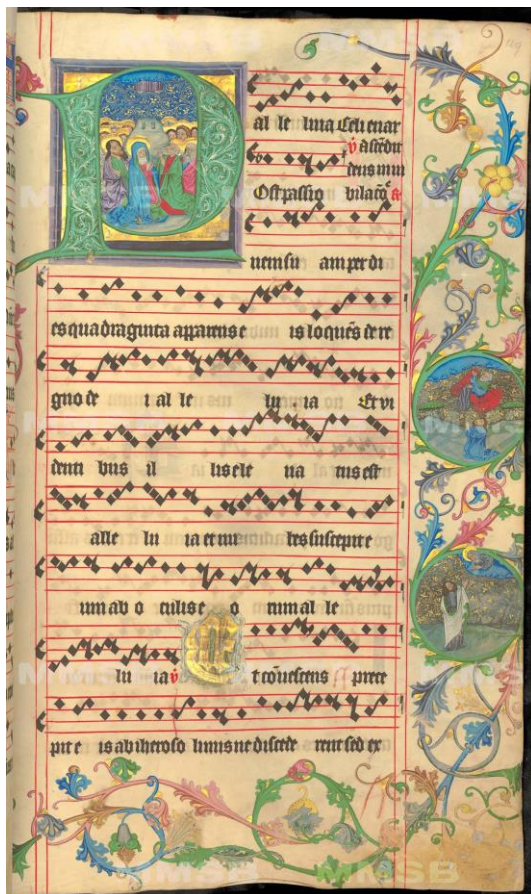 al le luia Celi enar
℣ Ascēdit
deus in iu
Ost passio bilacōe
uem su am per di
es quadraginta apparens e is loquēs de re
gno de i al le lu ia Et vi
denti bus il lis ele ua tus est
alle lu ia et nu bes suscepit e
um ab o culis e o rum al le
lu ia ℣ t cōuescens prece
pit e is ab iheroso limis ne discede rent sed ex
MMSB